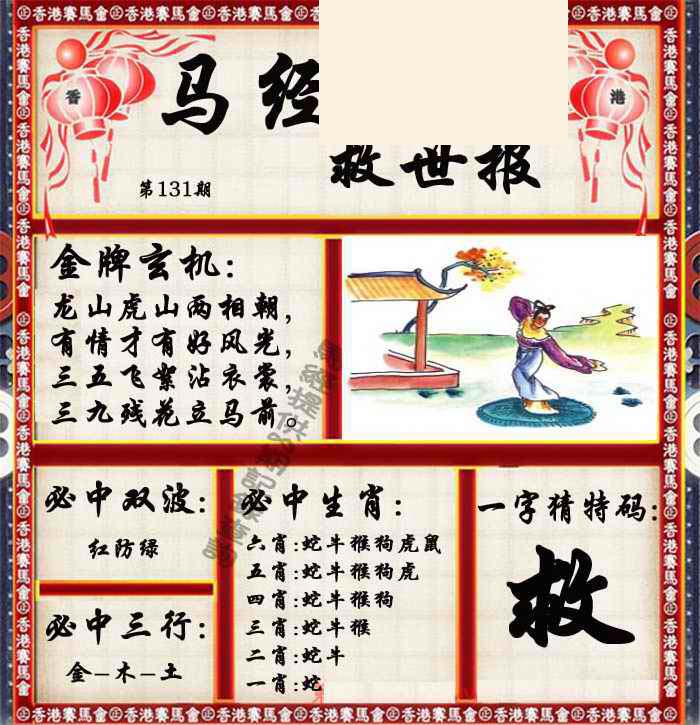 香港賽馬會
香 港
马经
救世报
第131期
金牌玄机:
龙山虎山两相朝,
有情才有好风光,
三五飞絮沾衣裳,
三九残花立马前。
必中双波:
红防绿
必中三行:
金-木-土
必中生肖:
六肖:蛇牛猴狗虎鼠
五肖:蛇牛猴狗虎
四肖:蛇牛猴狗
三肖:蛇牛猴
二肖:蛇牛
一肖:蛇
一字猜特码:
救